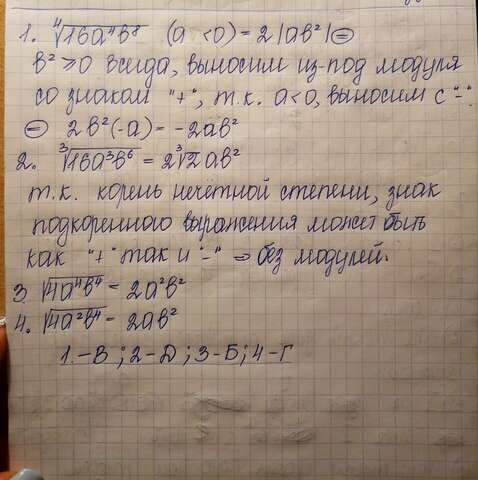 1. ⁴√16a⁴b⁸ (a < 0) = 2|ab²| ⊜
b² ⩾ 0 всегда, выносим из-под модуля
со знаком "+", т.к. a<0, выносим с "-".
⊜ 2b²(-a) = -2ab²
2. ³√16a³b⁶ = 2³√2 ab²
т.к. корень нечётной степени, знак
подкоренного выражения может быть
как "+" так и "-" ⇒ без модулей.
3. √4a⁴b⁴ = 2a²b²
4. √4a²b⁴ = 2ab²
1.-В ; 2-D ; 3-Б ; 4-Г